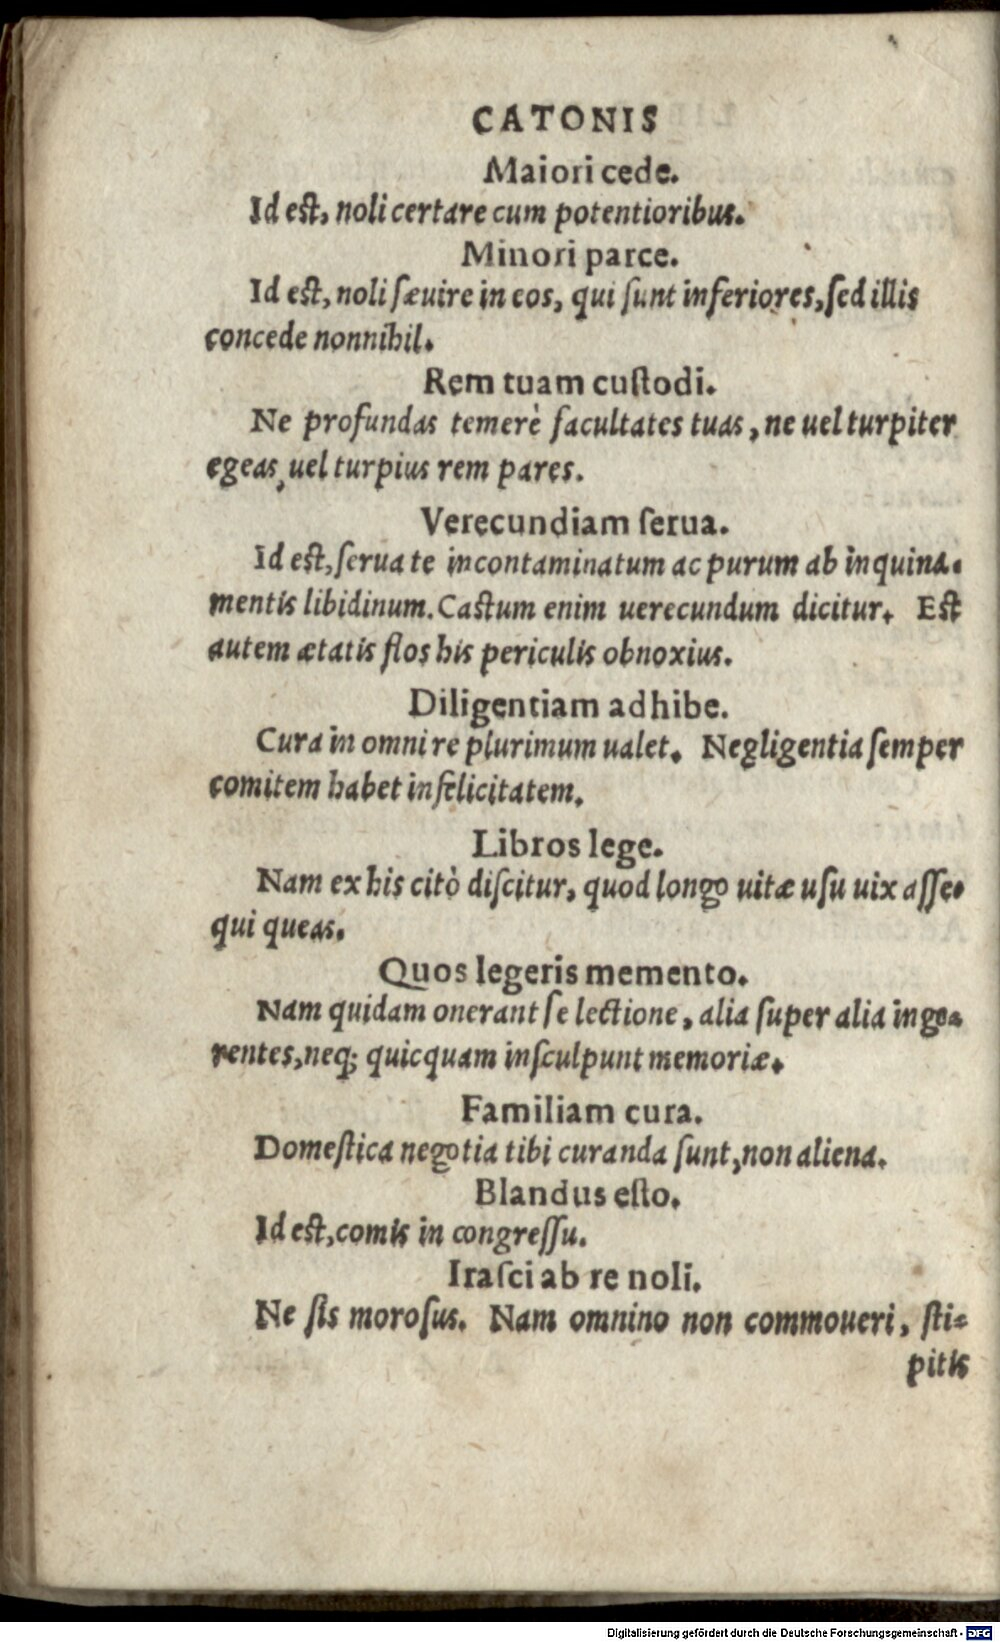 CATONIS
Maiori cede.
Id est, noli certare cum potentioribus.
Minori parce.
Id est, noli sæuire in eos, qui sunt inferiores, sed illis
concede nonnihil.
Rem tuam custodi.
Ne profundas temerè facultates tuas, ne uel turpiter
egeas, uel turpius rem pares.
Verecundiam serua.
Id est, serua te incontaminatum ac purum ab inquina-
mentis libidinum. Castum enim uerecundum dicitur. Est
autem ætatis flos his periculis obnoxius.
Diligentiam adhibe.
Cura in omni re plurimum ualet. Negligentia semper
comitem habet infelicitatem.
Libros lege.
Nam ex his citò discitur, quod longo uitæ usu uix asse-
qui queas.
Quos legeris memento.
Nam quidam onerant se lectione, alia super alia inge-
rentes, neq; quicquam insculpunt memoriæ.
Familiam cura.
Domestica negotia tibi curanda sunt, non aliena.
Blandus esto.
Id est, comis in congressu.
Irasci ab re noli.
Ne sis morosus. Nam omnino non commoueri, sti-
pitis
Digitalisierung gefördert durch die Deutsche Forschungsgemeinschaft - DFG